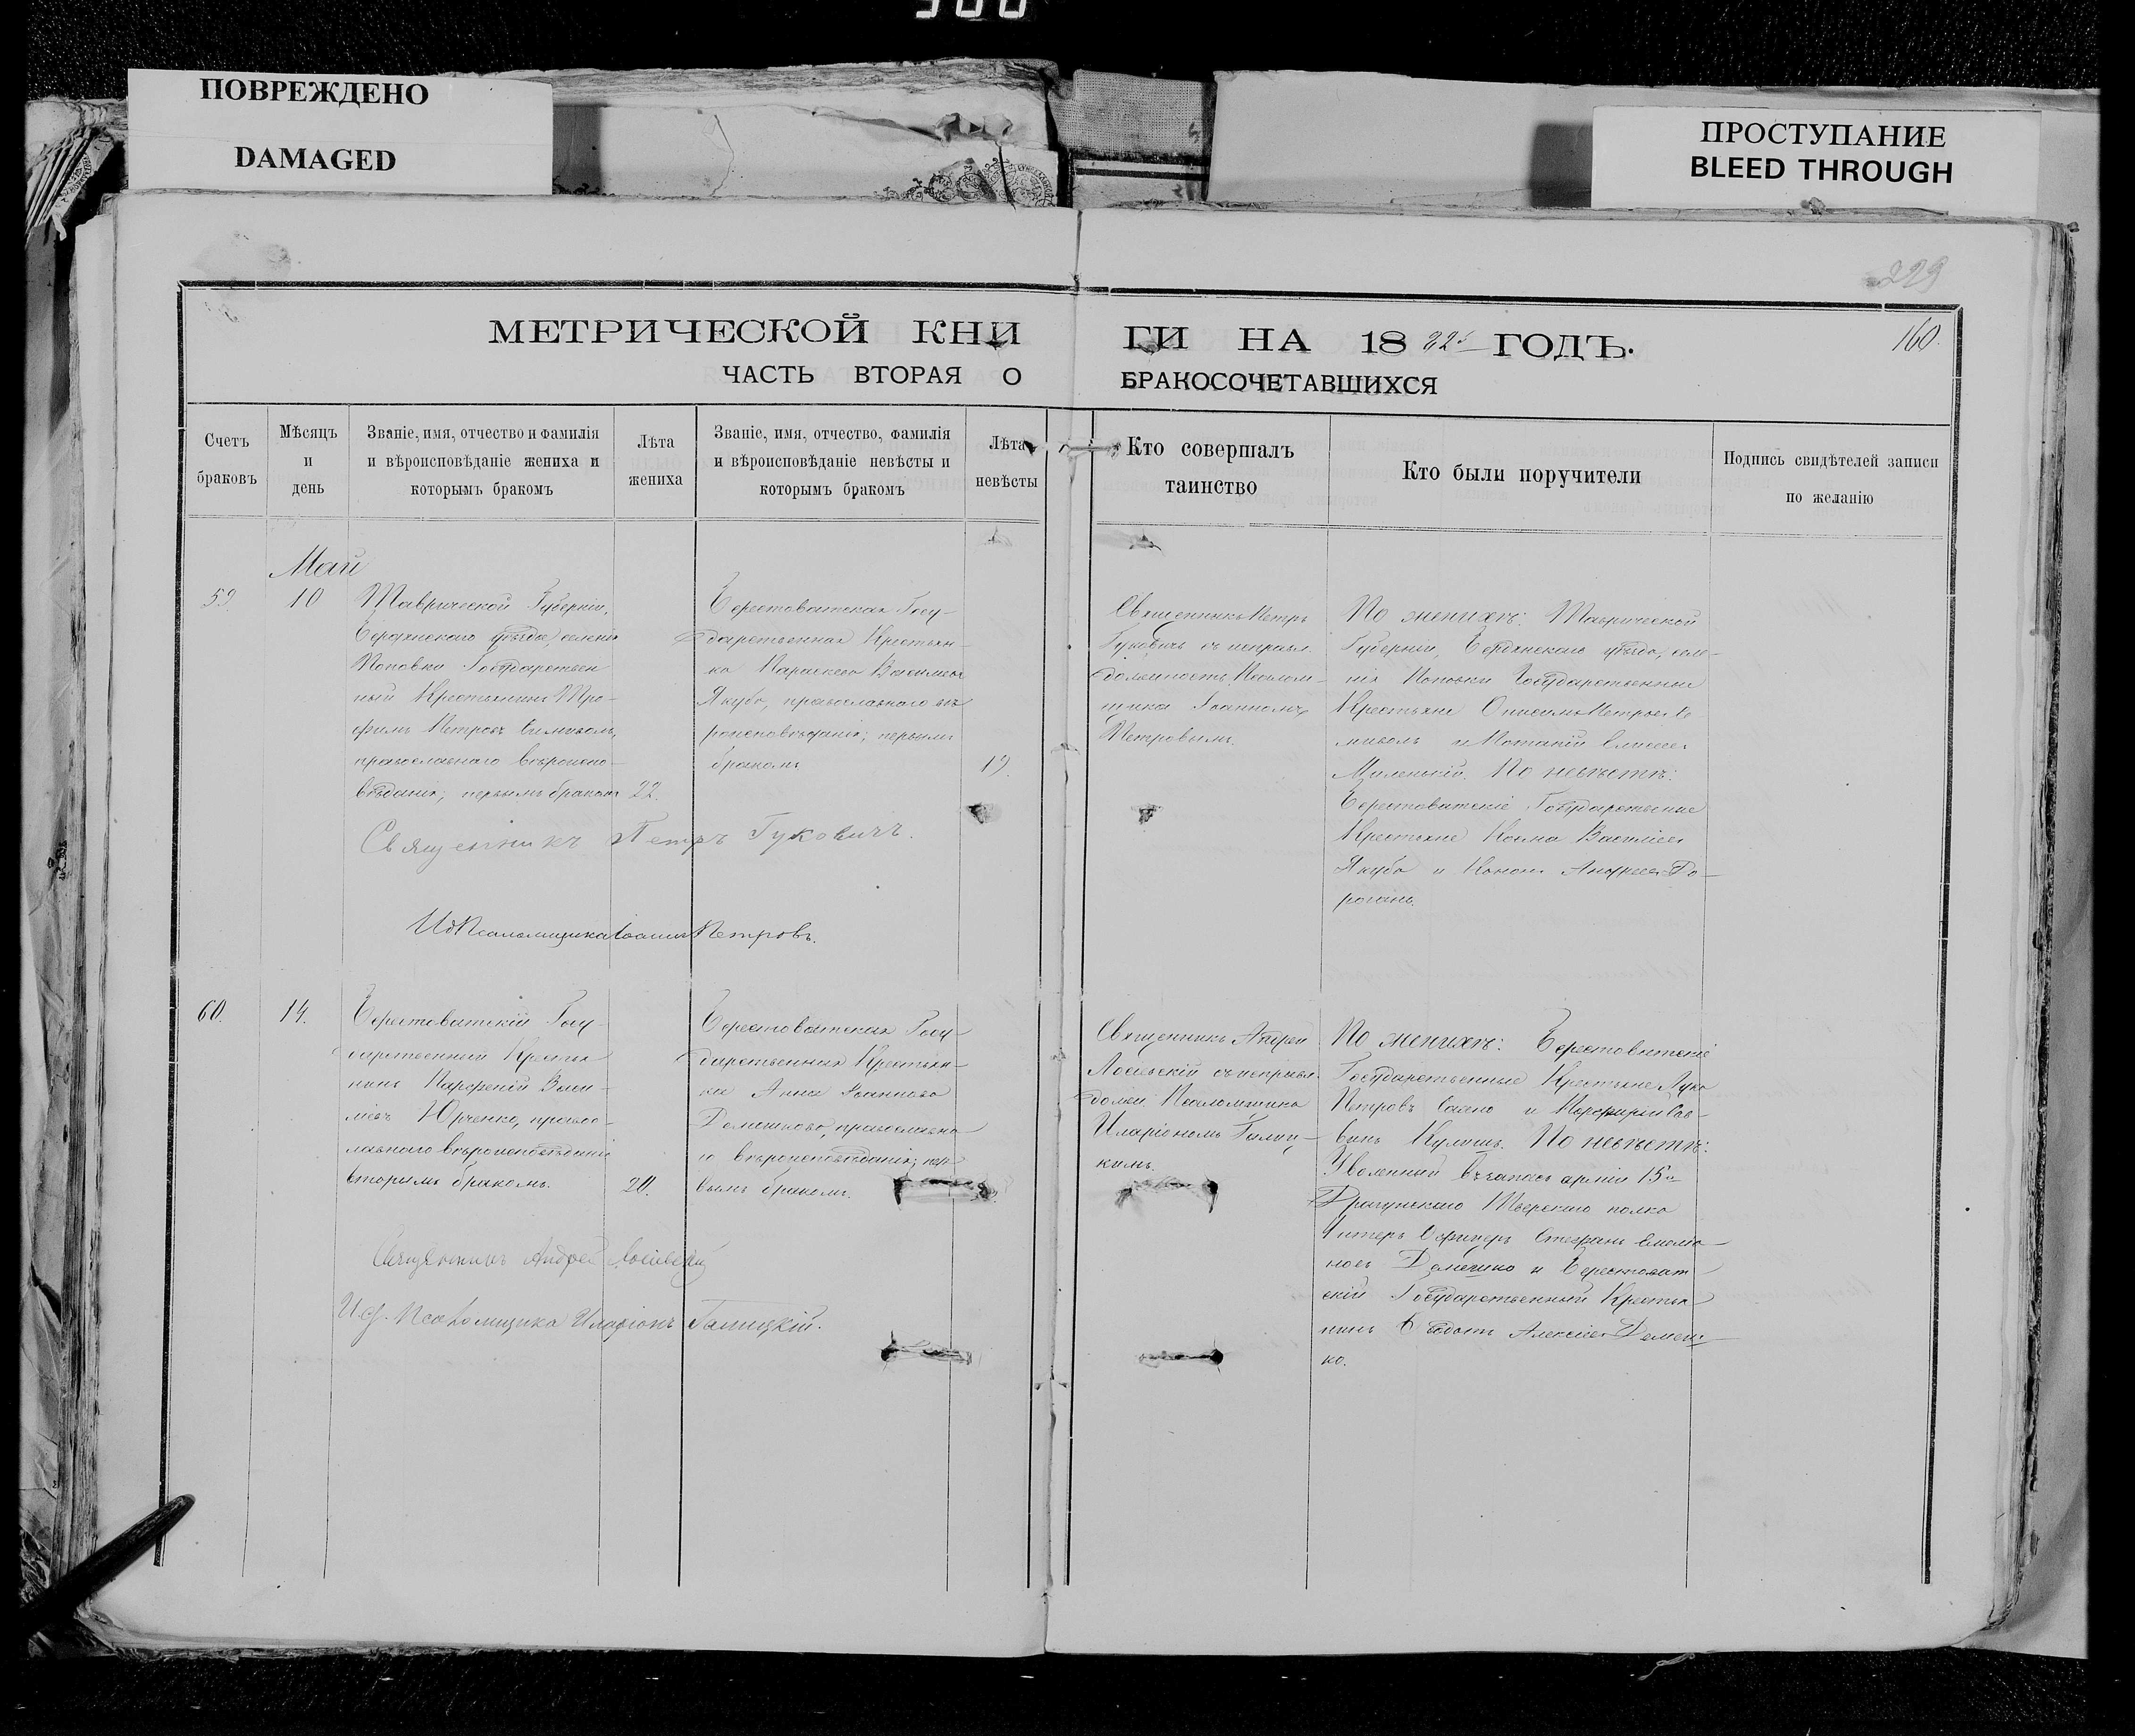 300
ПОВРЕЖДЕНО
DAMAGED
ПРОСТУПАНИЕ
BLEED THROUGH
229
МЕТРИЧЕСКОЙ КНИ ГИ НА 18 ГОДЪ.
160.
ЧАСТЬ ВТОРАЯ О БРАКОСОЧЕТАВШИХСЯ
Счетъ
браковъ
Мѣсяцъ
и
день
Званіе, имя, отчество и фамилія
и вѣроисповѣданіе жениха и
которымъ бракомъ
Лѣта
жениха
Званіе, имя, отчество, фамилія
и вѣроисповѣданіе невѣсты и
которымъ бракомъ
Лѣта
невѣсты
Кто совершалъ
таинство
Кто были поручители
Подпись свидѣтелей записи
по желанію
Май
59.
10
Таврической Губерніи,
Бердянскаго уѣзда, селенія
Поповки Государствен
ный Крестьянинъ Тро-
фимъ Петровъ
православнаго вѣроиспо-
вѣданія, первымъ бракомъ
22.
Берестоватская Госу-
дарственная Крестьян-
ка Параскева Васильева
Якуба, православнаго вѣ
роисповѣданія; первымъ
бракомъ
19.
Священникъ Петръ
Гуковичъ съ исправл.
должность Псалом-
щика Іоанномъ
Петровымъ.
По женихѣ: Таврической
Губерніи, Бердянскаго уѣзда, селе-
нія Поповки Государственные
Крестьяне Петровъ
По невѣстѣ:
Берестоватскіе Государственные
Крестьяне Косма Васильевъ
Якуба и Кононъ Андреевъ До-
рогань.
Священникъ Петръ Гуковичъ.
Ид Псаломщика Іоаннъ Петровъ.
60.
14.
Берестоватскій Госу-
дарственный Крестья
нинъ Парфеній Васи-
льевъ Юрченко, правос-
лавнаго вѣроисповѣданія
вторымъ бракомъ.
20.
Берестоватская Госу-
дарственная Крестьян-
ка Анна Іоаннова
Демешкова, православна
го вѣроисповѣданія; пер-
вымъ бракомъ.
Священникъ Андрей
Лосіевскій съ исправл.
должн. Псаломщика
Иларіономъ Галиц-
кимъ.
По женихѣ: Берестоватскіе
Государственные Крестьяне Лука
Петровъ и Порфирій Сав-
винъ Кулишъ. По невѣстѣ:
Уволенный въ запасъ арміи 15го
Драгунскаго Тверскаго полка
Унтеръ Офицеръ Стефанъ Емелья-
новъ Демешко и Берестоват-
скій Государственный Крестья-
нинъ Ѳедотъ Алексѣевъ Демеш-
ко.
Священникъ Андрей Лосіевскій
И.д. Псаломщика Иларіонъ Галицкій.